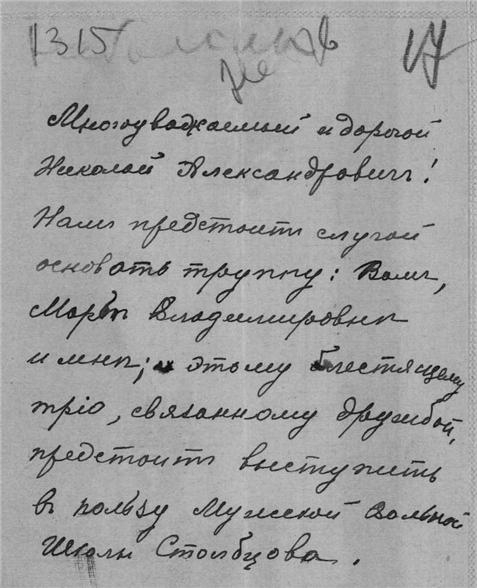 1315
17
Многоуважаемый и дорогой
Николай Александровичъ!
Намъ предстоитъ случай
основать труппу: Вамъ,
Марьѣ Владимировнѣ
и мнѣ; и этому блестящему
тріо, связанному дружбой,
предстоитъ выступить
въ пользу Мужской вольной
Школы Столбцова.